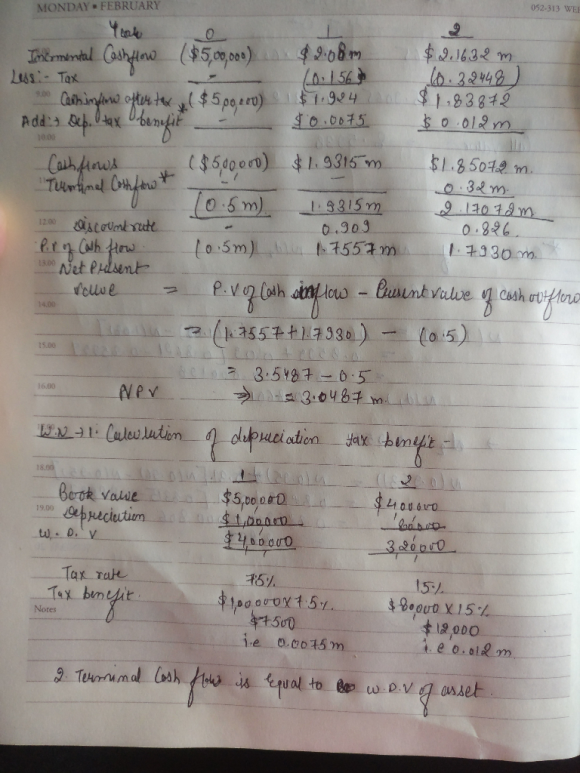 MONDAY • FEBRUARY 052-313 WE
Year 0 1 2
Incremental Cashflow ($5,00,000) $2.08m $2.1632 m
Less:- Tax - (0.156) (0.32448)
Cash inflow after tax ($5,00,000) $1.924 $1.83872
Add:→ Dep. tax benefit* - $0.0075 $0.012m
Cashflows ($500000) $1.9315m $1.85072m.
Terminal Cashflow* - - 0.32m
(0.5m) 1.9315m 2.17072m
12.00 Discount rate - 0.909 0.826
P.V of Cash flow (0.5m) 1.7557m 1.7930m
Net Present
Value = P.V of Cash inflow - Present value of cash outflow
14.00
= (1.7557+1.7930) - (0.5)
15.00
= 3.5487 - 0.5
16.00 NPV ⇒ = 3.0487 m
W.N → 1. Calculation of depreciation tax benefit -
18.00 1 2
Book value $5,00,000 $400000
19.00 Depreciation $1,00,000 80000
W.D.V $4,00,000 3,20,000
Tax rate 7.5% 15%
Tax benefit. $1,00,000 x 7.5% $80,000 x 15%
Notes $7500 $12,000
i.e 0.0075m i.e 0.012m
2. Terminal Cash flow is equal to W.D.V of asset.